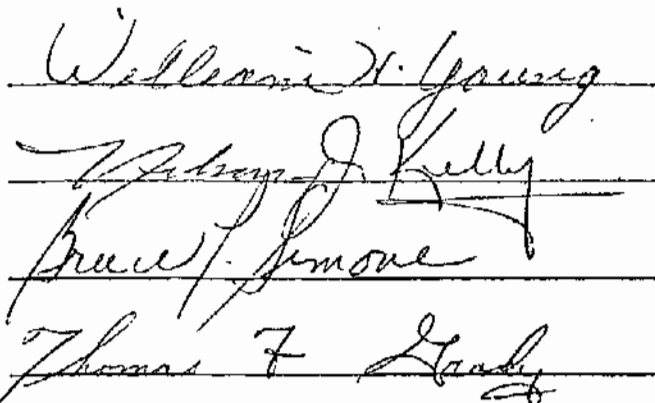 William H. Young
Nelson J. Kelly
Bruce P. Simone
Thomas F Grady